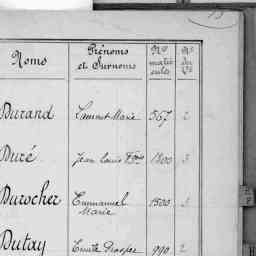 13
Noms Prénoms et Surnoms Nos matricules Nos du Vol.
Durand Laurent Marie 567 2
Duré Jean Louis Fçois 1800 3
Durocher Emmanuel Marie 1500 3
Dutay 990 2